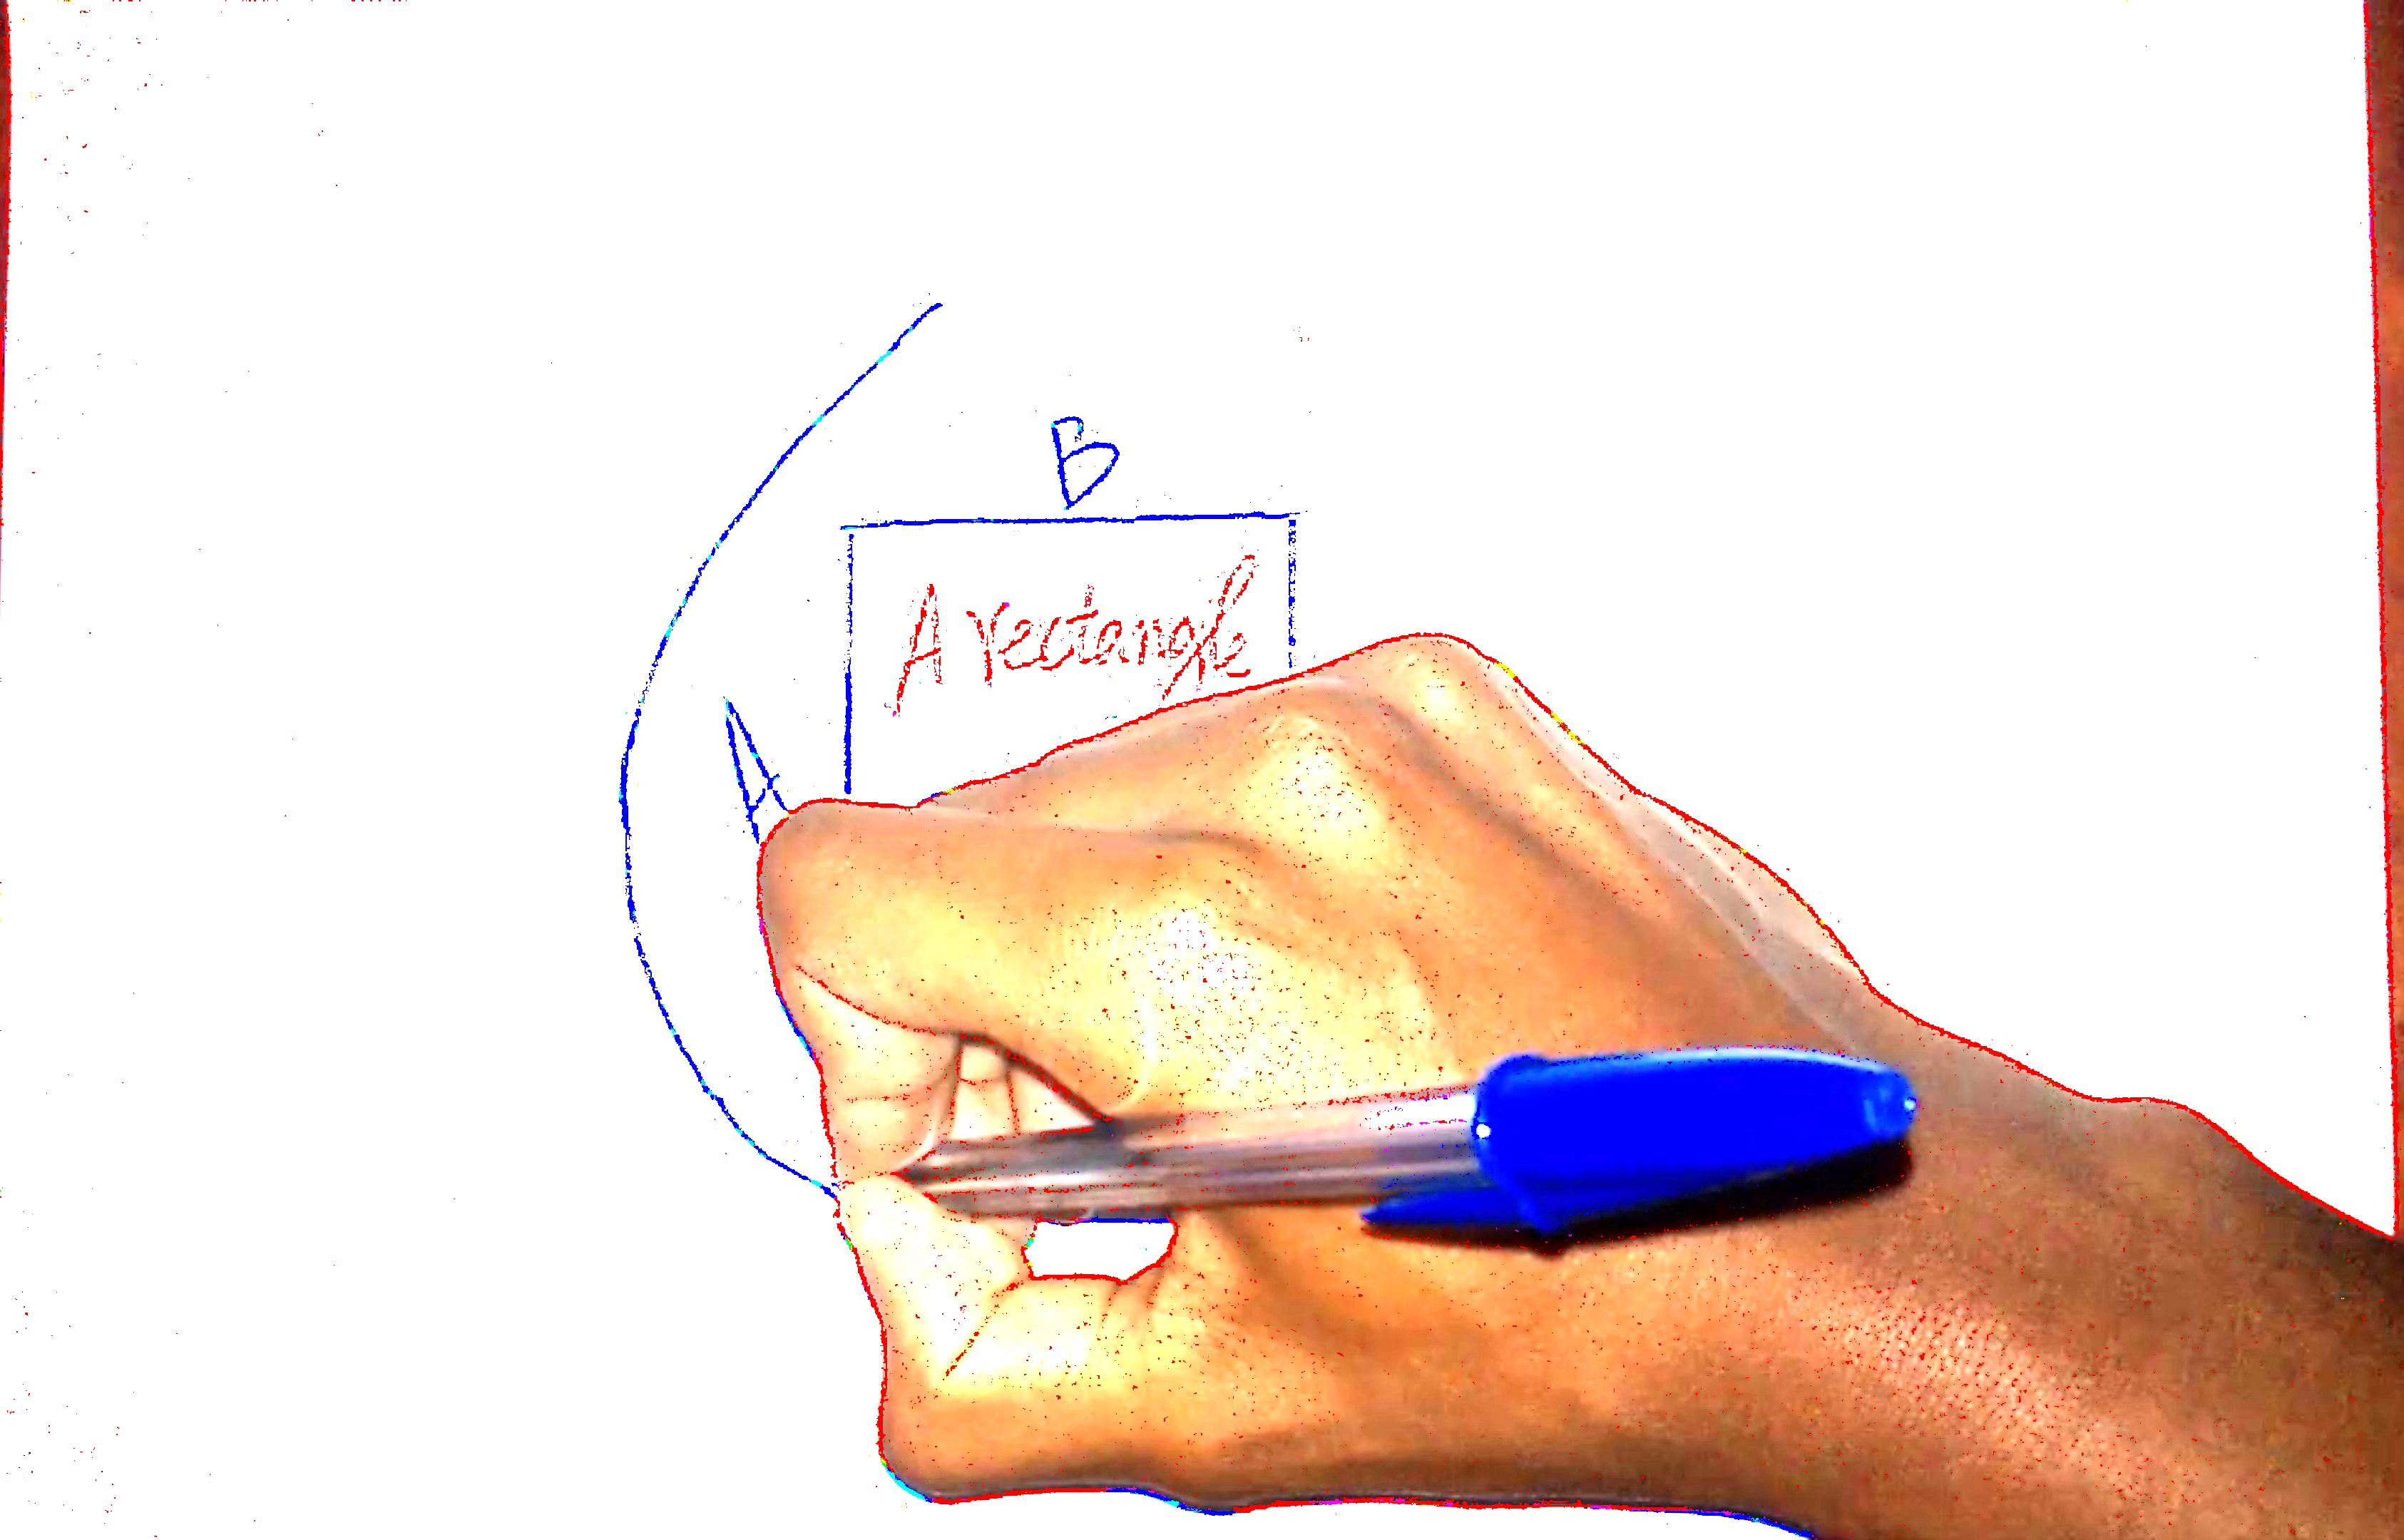 B
A rectangle
A